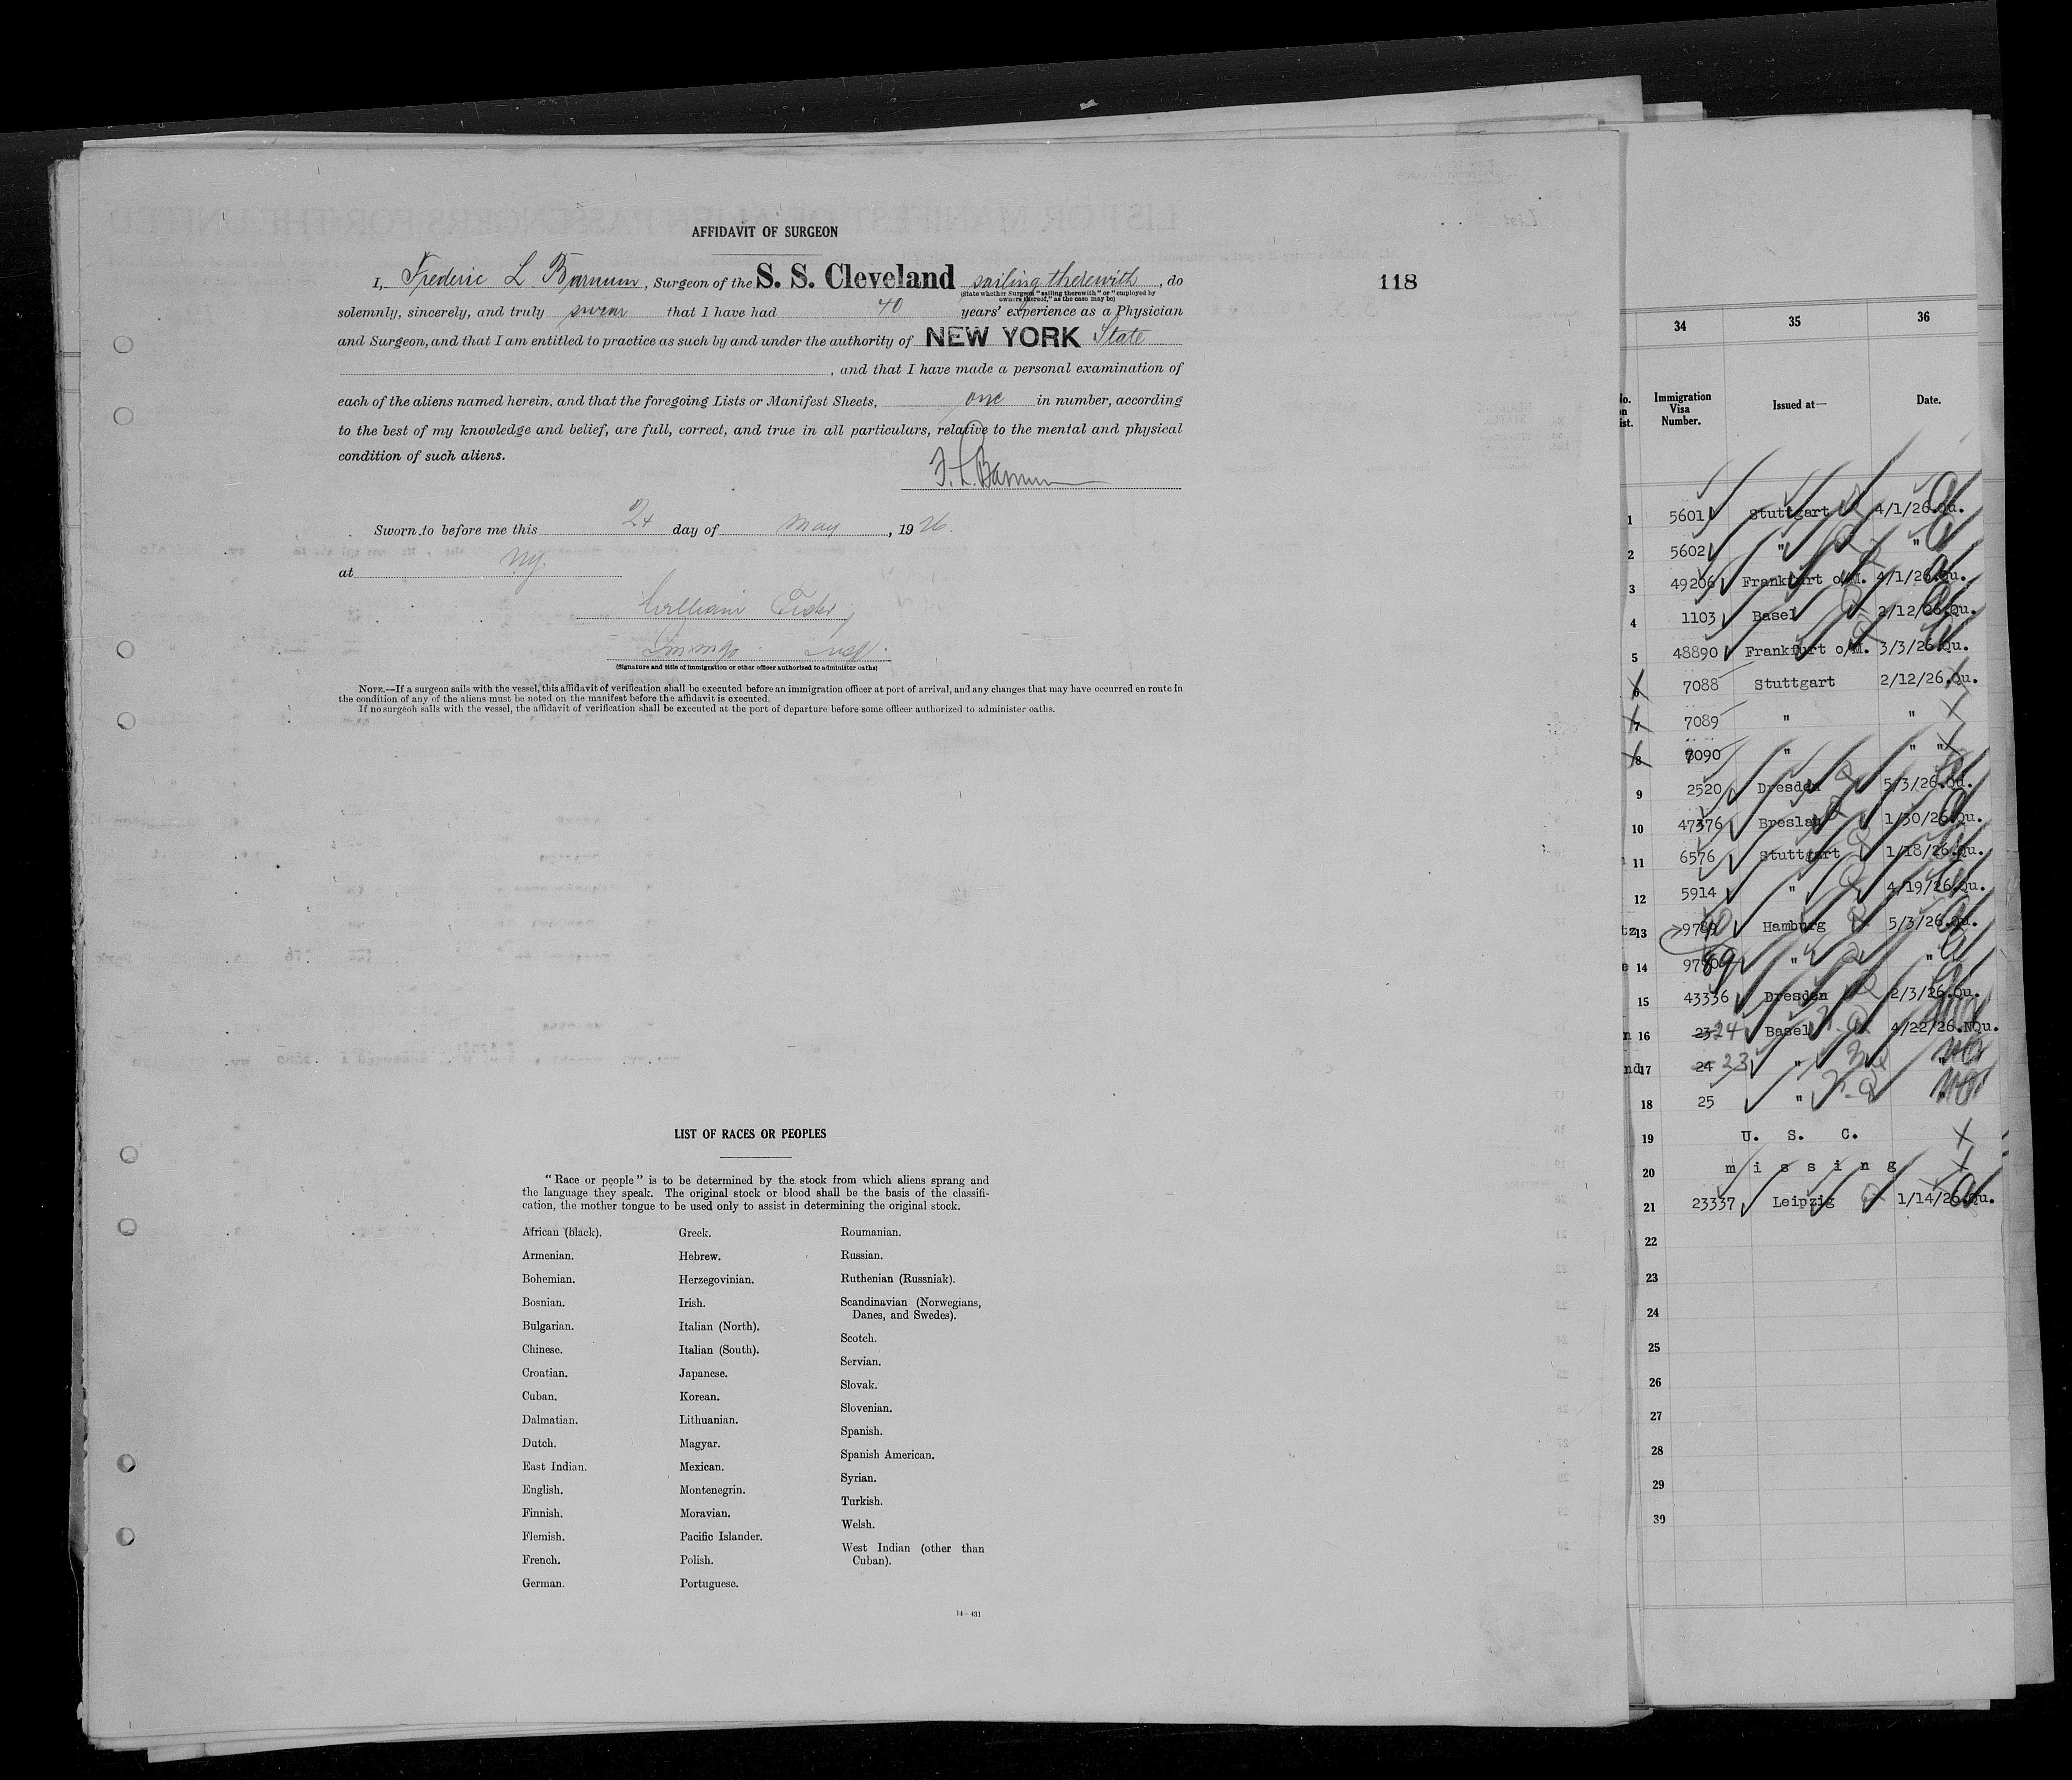 AFFIDAVIT OF SURGEON
118
I, Frederic L Barnum, Surgeon of the S. S. Cleveland sailing therewith, do
(State whether Surgeon "sailing therewith" or "employed by
owners thereof," as the case may be)
solemnly, sincerely, and truly swear that I have had 40 years' experience as a Physician
and Surgeon, and that I am entitled to practice as such by and under the authority of NEW YORK State
, and that I have made a personal examination of
each of the aliens named herein, and that the foregoing Lists or Manifest Sheets, one in number, according
to the best of my knowledge and belief, are full, correct, and true in all particulars, relative to the mental and physical
condition of such aliens.
F. L. Barnum
Sworn to before me this 24 day of May, 1926.
at NY.
William
Insp.
(Signature and title of immigration or other officer authorized to administer oaths)
NOTE.—If a surgeon sails with the vessel, this affidavit of verification shall be executed before an immigration officer at port of arrival, and any changes that may have occurred en route in
the condition of any of the aliens must be noted on the manifest before the affidavit is executed.
If no surgeon sails with the vessel, the affidavit of verification shall be executed at the port of departure before some officer authorized to administer oaths.
LIST OF RACES OR PEOPLES
"Race or people" is to be determined by the stock from which aliens sprang and
the language they speak. The original stock or blood shall be the basis of the classifi-
cation, the mother tongue to be used only to assist in determining the original stock.
African (black).
Armenian.
Bohemian.
Bosnian.
Bulgarian.
Chinese.
Croatian.
Cuban.
Dalmatian.
Dutch.
East Indian.
English.
Finnish.
Flemish.
French.
German.
Greek.
Hebrew.
Herzegovinian.
Irish.
Italian (North).
Italian (South).
Japanese.
Korean.
Lithuanian.
Magyar.
Mexican.
Montenegrin.
Moravian.
Pacific Islander.
Polish.
Portuguese.
Roumanian.
Russian.
Ruthenian (Russniak).
Scandinavian (Norwegians,
Danes, and Swedes).
Scotch.
Servian.
Slovak.
Slovenian.
Spanish.
Spanish American.
Syrian.
Turkish.
Welsh.
West Indian (other than
Cuban).
14—431
34 35 36
Immigration
Visa
Number.
Issued at—
Date.
1 5601 Stuttgart 4/1/26.Qu.
2 5602 " "
3 49206 Frankfurt o/M. 4/1/26.Qu.
4 1103 Basel 2/12/26.Qu.
5 48890 Frankfurt o/M. 3/3/26.Qu.
6 7088 Stuttgart 2/12/26.Qu.
7 7089 " "
8 7090 " " "
9 2520 Dresden 5/3/26.Qu.
10 47376 Breslau 1/30/26.Qu.
11 6576 Stuttgart 1/18/26.Qu.
12 5914 " 4/19/26.Qu.
tz 13 9789 90 Hamburg 5/3/26.Qu.
e 14 9790 89 " "
15 43336 Dresden 2/3/26.Qu.
n 16 23 24 Basel 4/22/26.NQu.
nd 17 24 23 " "
18 25 " "
19 U. S. C.
20 missing
21 23337 Leipzig 1/14/26.Qu.
22
23
24
25
26
27
28
29
30